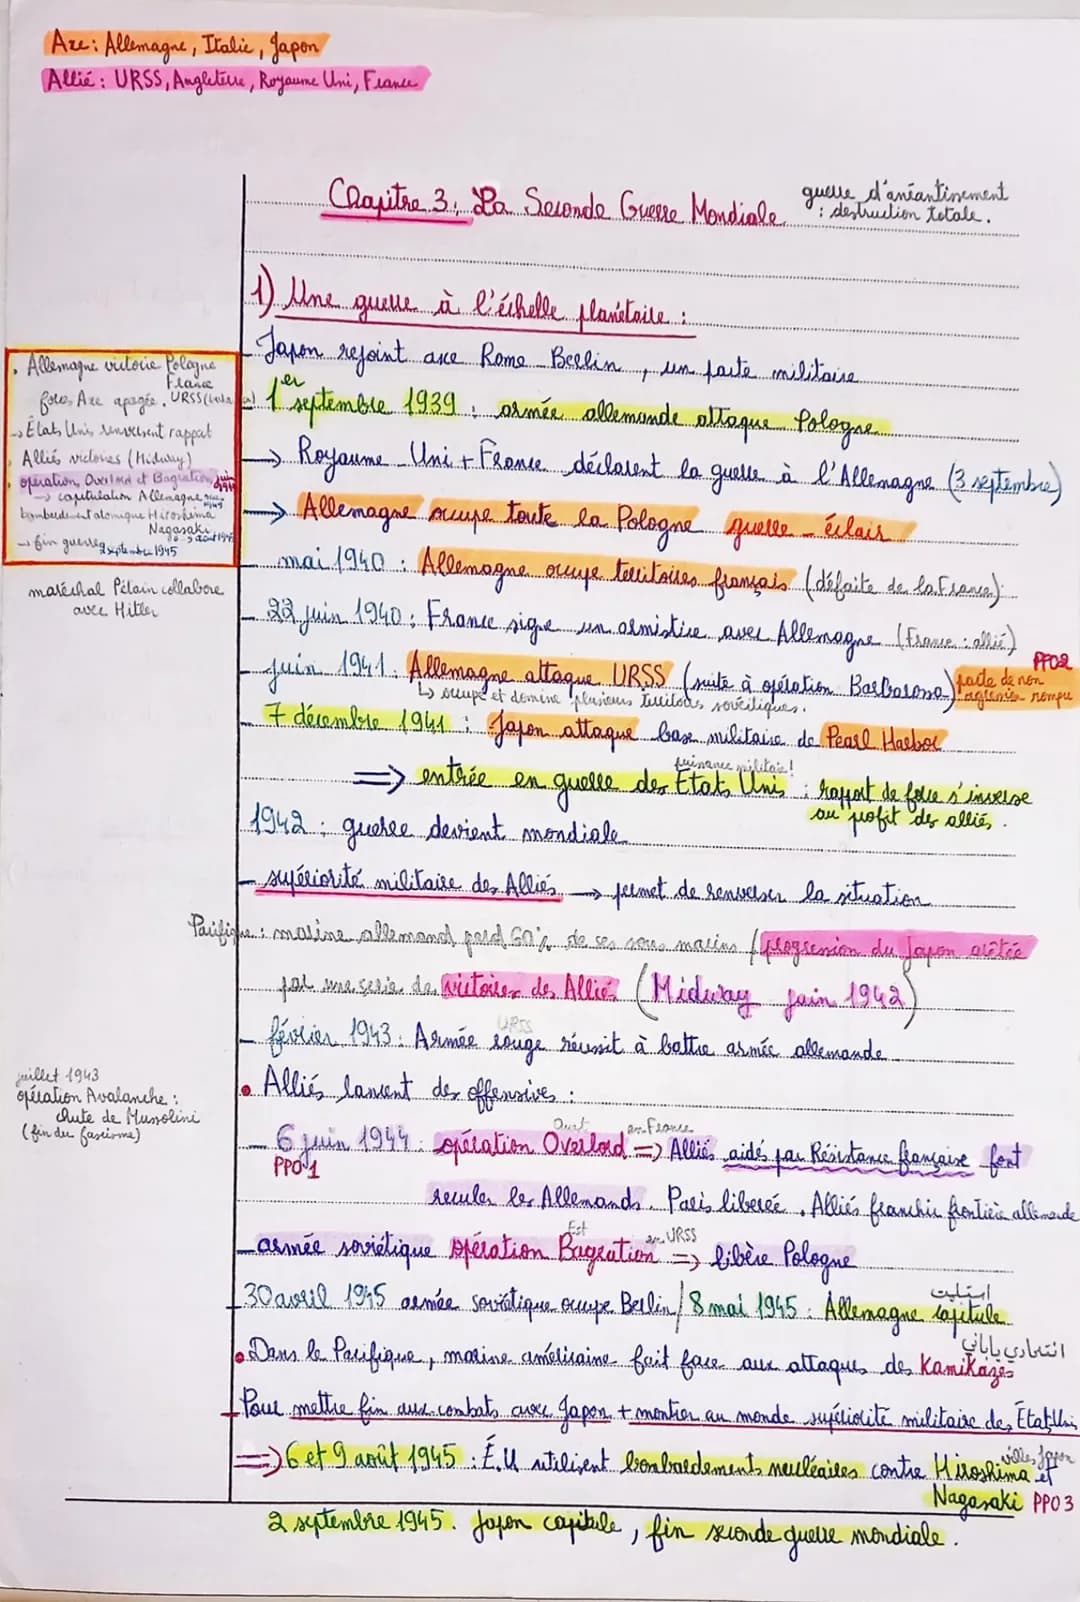 Axe : Allemagne, Italie, Japon
Allié : URSS, Angleterre, Royaume Uni, France
Chapitre 3 : La Seconde Guerre Mondiale
guerre d'anéantissement
: destruction totale.
1) Une guerre à l'échelle planétaire :
- Japon rejoint axe Rome-Berlin, un pacte militaire
- 1er septembre 1939 : armée allemande attaque Pologne
→ Royaume-Uni + France déclarent la guerre à l'Allemagne (3 septembre)
→ Allemagne occupe toute la Pologne guerre-éclair
- mai 1940 : Allemagne occupe territoires français (défaite de la France)
- 22 juin 1940 : France signe un armistice avec Allemagne (France : allié)
- juin 1941 : Allemagne attaque URSS (suite à opération Barbarossa) pacte de non agression rompu
PPO2
↳ occupe et domine plusieurs territoires soviétiques.
- 7 décembre 1941 : Japon attaque base militaire de Pearl Harbor
puissance militaire !
⇒ entrée en guerre des États Unis : rapport de force s'inverse
au profit des alliés.
1942 : guerre devient mondiale
- supériorité militaire des Alliés → permet de renverser la situation
Pacifique : marine allemand perd 60% de ses sous marins / progression du Japon arrêtée
par une série de victoires des Alliés (Midway juin 1942)
URSS
- février 1943 : Armée rouge réussit à battre armée allemande
• Alliés lancent des offensives :
Ouest en France
- 6 juin 1944 : opération Overlord ⇒ Alliés aidés par Résistance française font
PPO 1
reculer les Allemands. Paris liberée. Alliés franchir frontière allemande
Est en URSS
- armée soviétique opération Bagration ⇒ libère Pologne
- 30 avril 1945 armée soviétique occupe Berlin / 8 mai 1945 : Allemagne capitule
انتحاري ياباني
• Dans le Pacifique, marine américaine fait face aux attaques des Kamikazes
- Pour mettre fin aux combats avec Japon + montrer au monde supériorité militaire des États Unis
villes Japon
⇒ 6 et 9 août 1945 : É.U utilisent bombardements nucléaires contre Hiroshima et
Nagasaki PPO 3
2 septembre 1945 . Japon capitule, fin seconde guerre mondiale.
• Allemagne victoire Pologne
France
forces Axe apogée. URSS
→ États Unis renversent rapport
• Alliés victoires (Midway)
• opération Overlord et Bagration juin 1944
→ capitulation Allemagne mai 1945
bombardement atomique Hiroshima
Nagasaki
6-9 août 1945
→ fin guerre 2 septembre 1945
maréchal Pétain collabore
avec Hitler
juillet 1943
opération Avalanche :
chute de Mussolini
(fin du fascisme)